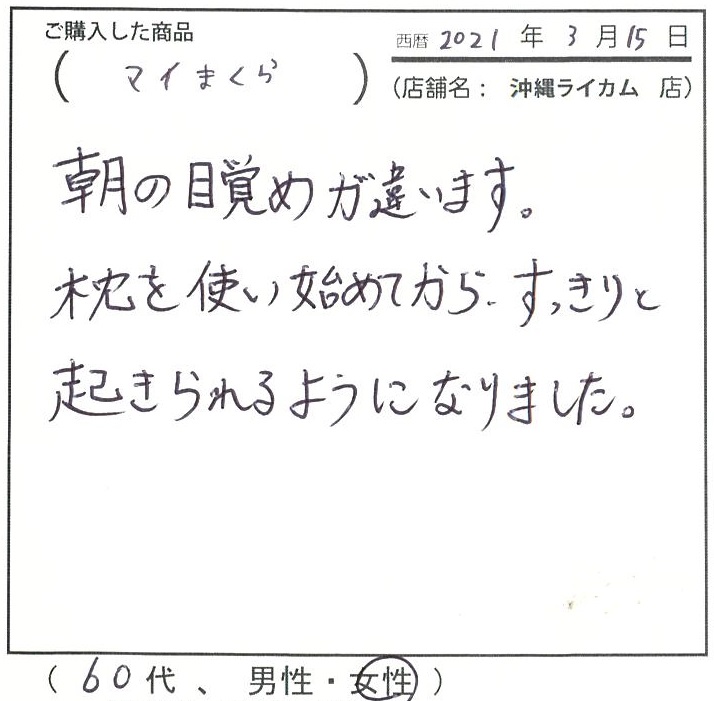 ご購入した商品
西暦 2021 年 3 月 15 日
( マイまくら )
(店舗名： 沖縄ライカム 店)
朝の目覚めが違います。
枕を使い始めてから、すっきりと
起きられるようになりました。
( 60代 、 男性・女性 )